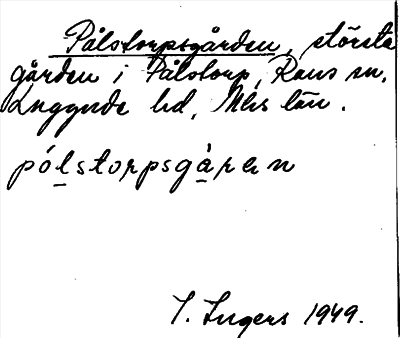 Pålstorpsgården, största
gården i Pålstorp, Raus sn.
Luggude hd, Mlhs län.
pólstorpsgàrən
I. Ingers 1949.